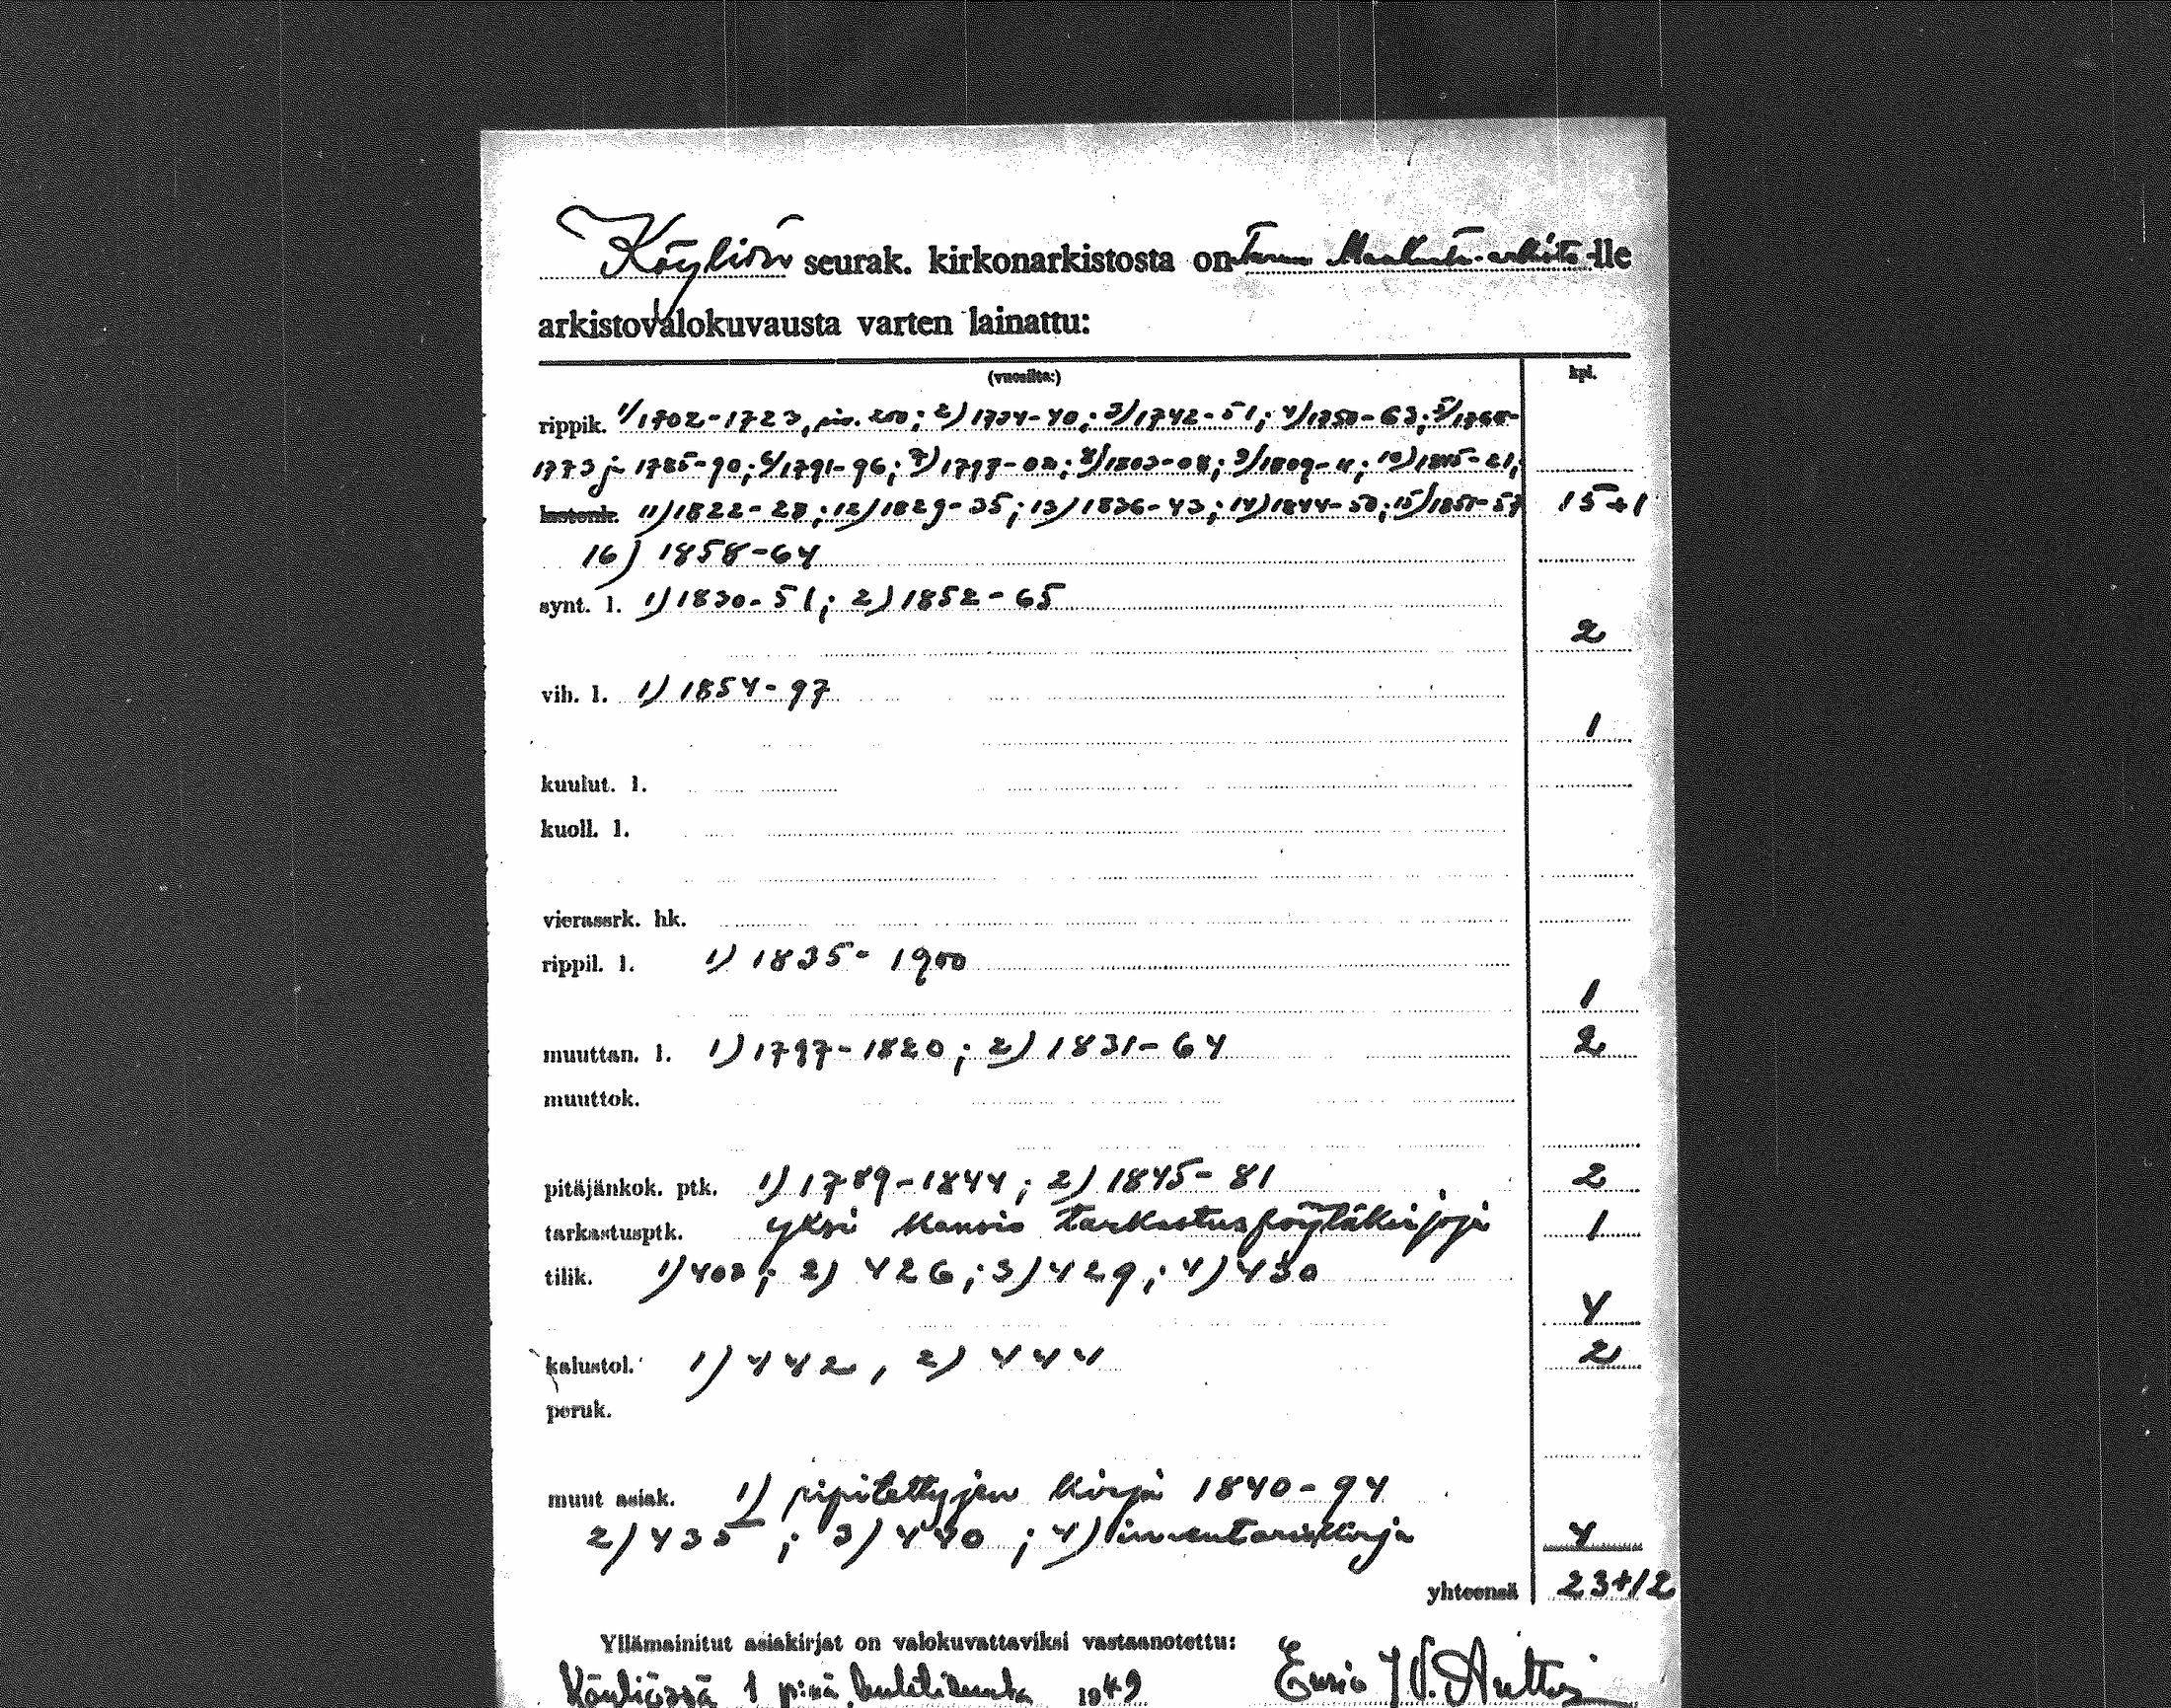 Köyliön seurak. kirkonarkistosta on Turun Maakunta-arkisto-lle
arkistovalokuvausta varten lainattu:
(vuosilta:) kpl.
rippik. 1/1702-1723, siv. 200; 2) 1734-40; 3/1742-51; 4/1750-63; 5/1765-
1773 j 1785-90; 6/1791-96; 7) 1797-02; 8/1803-08; 9/1809-11; 10) 1815-21;
11) 1822-28; 12) 1829-35; 13) 1836-43; 14) 1844-50; 15) 1851-57 15+1
16) 1858-64
synt. l. 1) 1830-51; 2) 1852-65
2
vih. l. 1) 1854-97
1
kuulut. l.
kuoll. l.
vierassrk. hk.
rippil. l. 1) 1835-1900
1
muuttan. l. 1) 1797-1820; 2) 1831-64 2
muuttok.
pitäjänkok. ptk. 1) 1789-1844; 2) 1845-81 2
tarkastusptk. yksi kansio tarkastuspöytäkirjoja 1
tilik. 1) 402; 2) 426; 3) 429; 4) 430
4
kalustol. 1) 442, 2) 444 2
peruk.
muut asiak. 1) ripitettyjen kirja 1840-94
2) 435; 3) 440; 4) inventariokirja 4
yhteensä 23+12
Yllämainitut asiakirjat on valokuvattaviksi vastaanotettu:
Köyliössä 1 p:nä huhtikuuta 1949